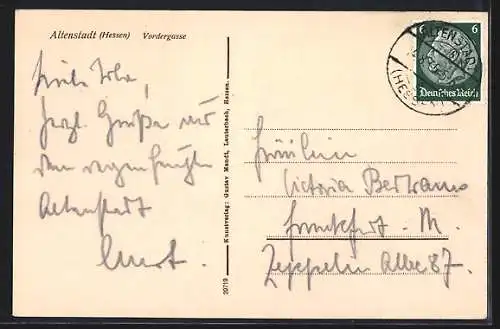 Altenstadt (Hessen) Vordergasse
Liebe
herzl. Grüße aus
dem regenfeuchten
Altenstadt
Kunstverlag: Gustav Mandt, Lauterbach, Hessen.
20719
6 6
Deutsches Reich
ALTENSTADT
(HESSEN)
Fräulein
Victoria
Frankfurt - M.
Zeppelin Allee 87.